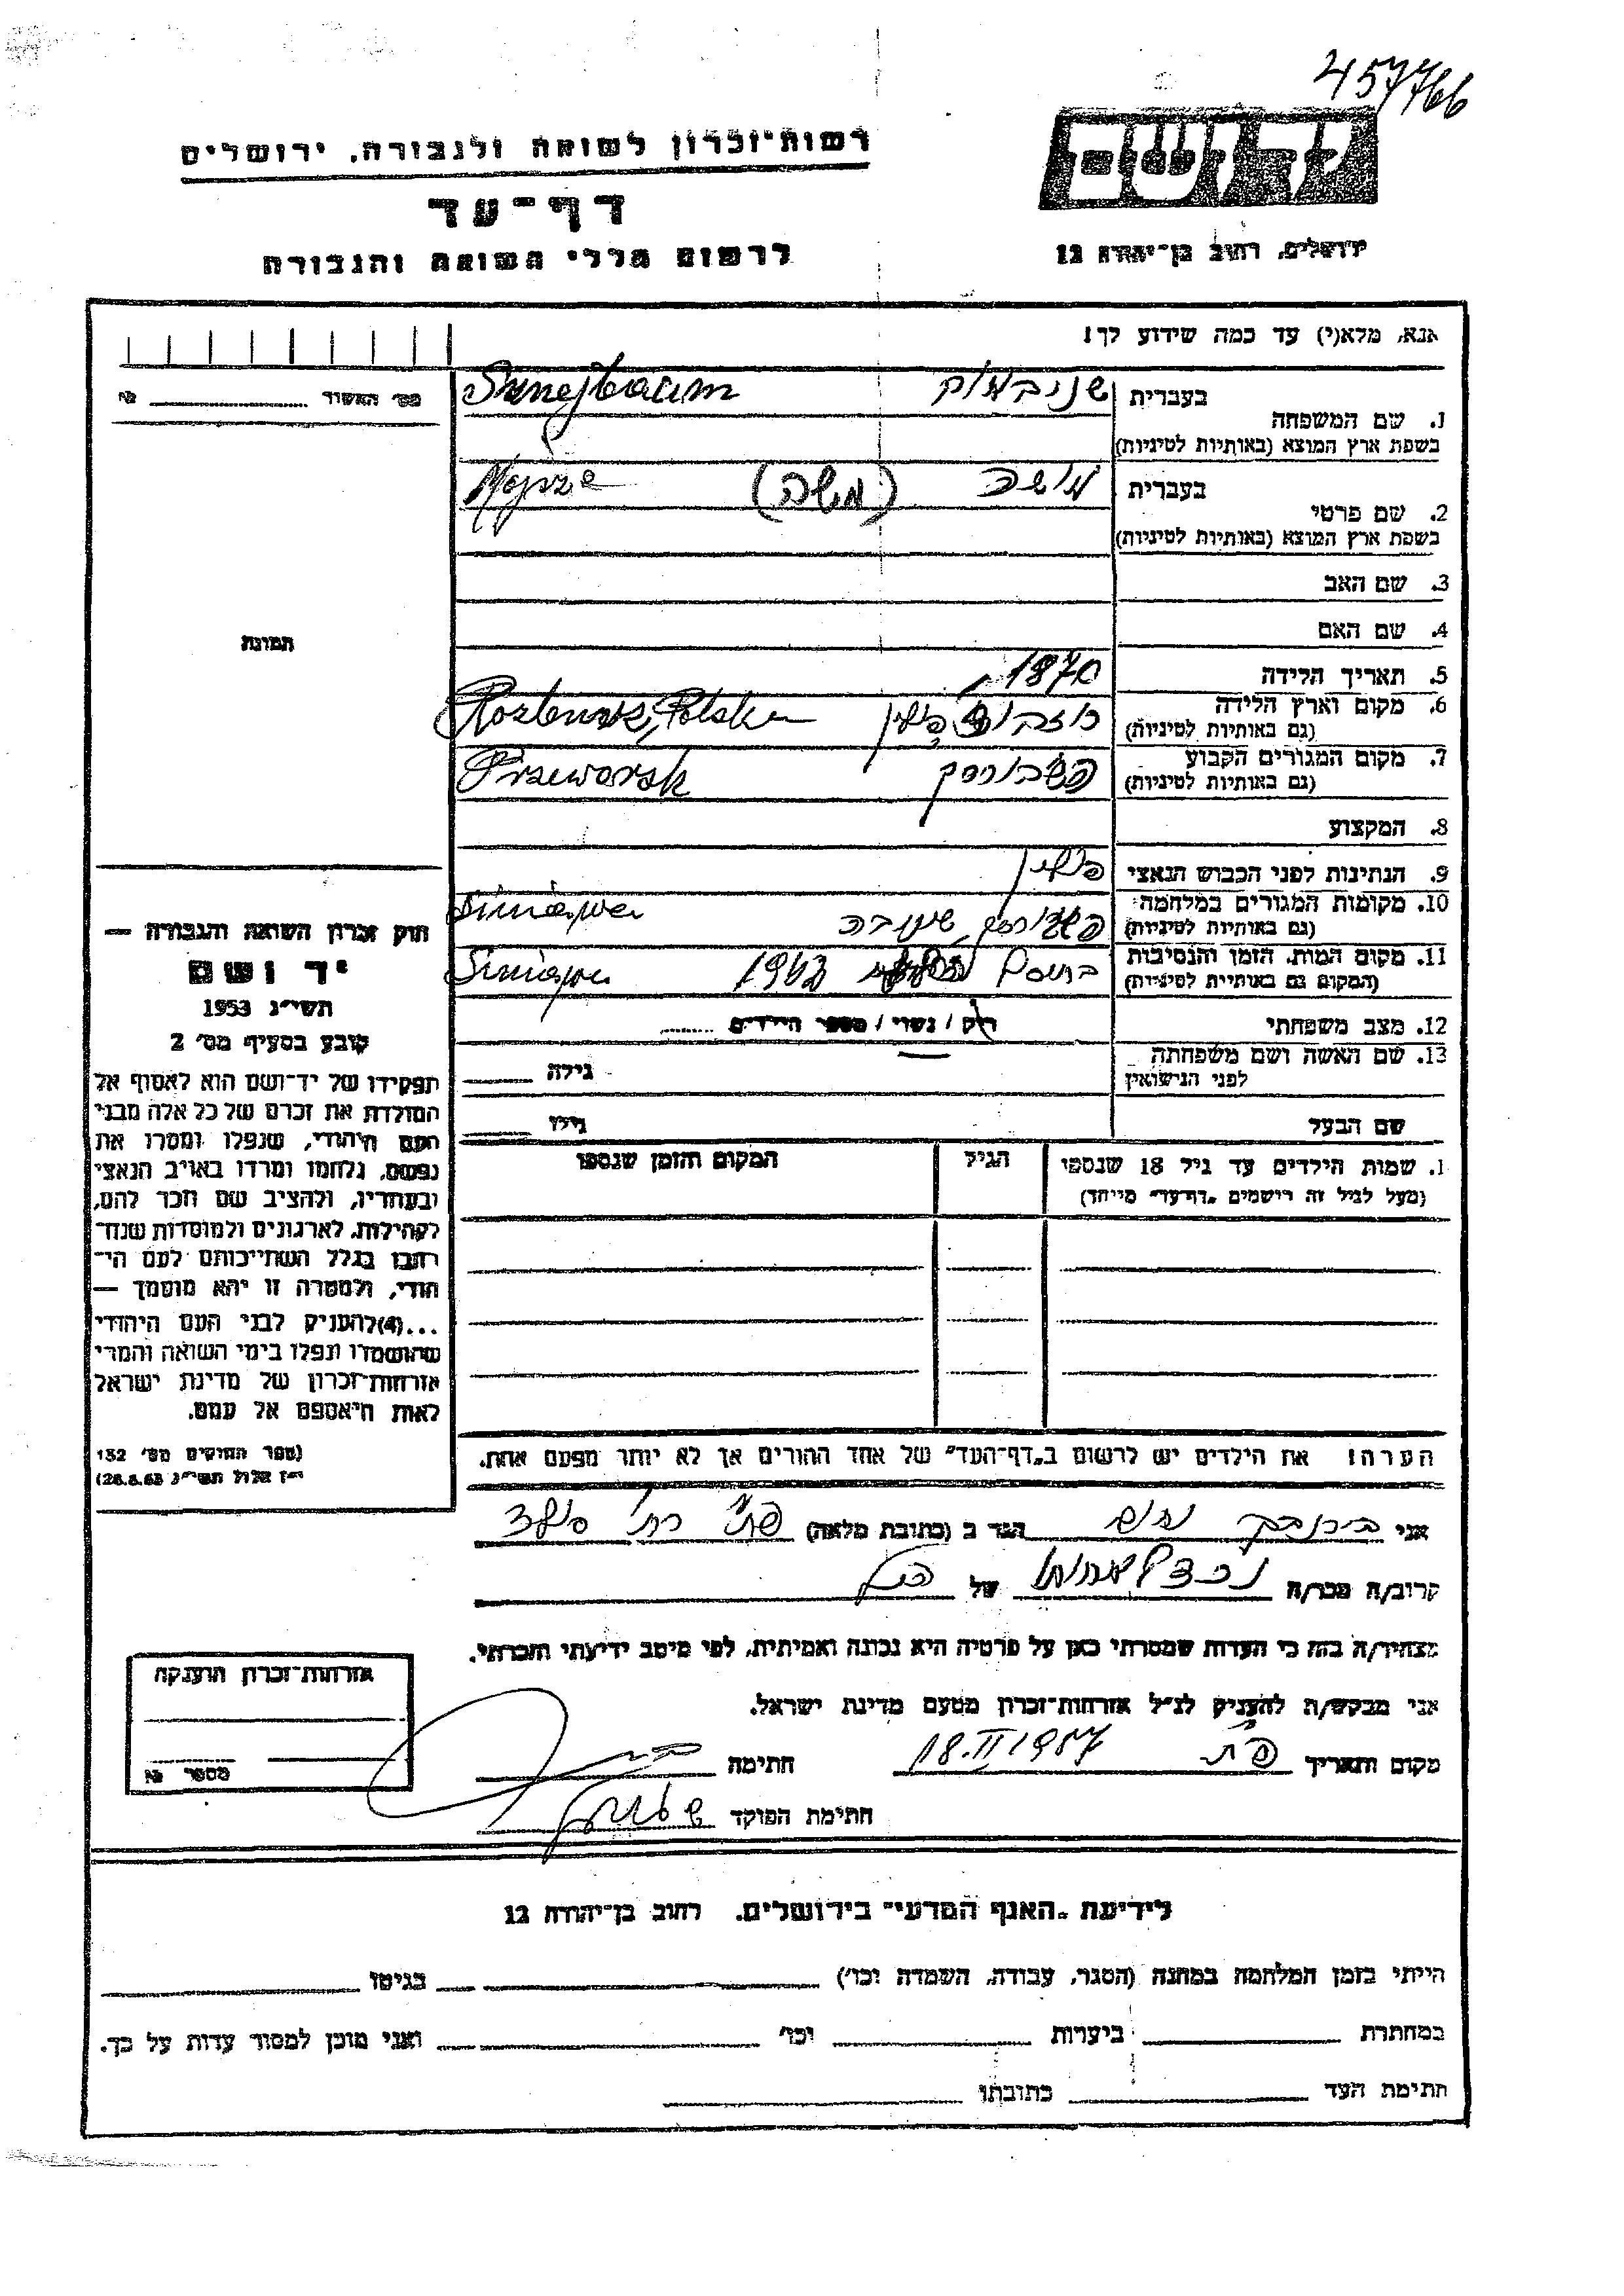 457766
יד ושם
רשות־זכרון לשואה ולגבורה, ירושלים
דף־עד
לרשום חללי השואה והגבורה
ירושלים, רחוב בן־יהודה 12
אנא, מלא(י) עד כמה שידוע לך!
מס׳ האשור №
1. שם המשפחה
בעברית שניבאום Sznejbaum
בשפת ארץ המוצא (באותיות לטיניות)
2. שם פרטי
בעברית (משה)
בשפת ארץ המוצא (באותיות לטיניות)
3. שם האב
4. שם האם
תמונה
5. תאריך הלידה 1870
6. מקום וארץ הלידה פולין Polska
(גם באותיות לטיניות)
7. מקום המגורים הקבוע פשבורסק Przeworsk
(גם באותיות לטיניות)
8. המקצוע
9. הנתינות לפני הכבוש הנאצי פולין
10. מקומות המגורים במלחמה פשבורסק, שינובה Siniawa
(גם באותיות לטיניות)
11. מקום המות, הזמן והנסיבות 1942 Siniawa
(המקום גם באותיות לטיניות)
12. מצב משפחתי רוק / נשוי / מספר הילדים
13. שם האשה ושם משפחתה גילה
לפני הנישואין
שם הבעל גילו
1. שמות הילדים עד גיל 18 שנספו הגיל המקום והזמן שנספו
(מעל לגיל זה רושמים „דף־עד״ מיוחד)
חוק זכרון השואה והגבורה —
יד ושם
תשי״ג 1953
קובע בסעיף מס׳ 2
תפקידו של יד־ושם הוא לאסוף אל
המולדת את זכרם של כל אלה מבני
העם היהודי, שנפלו ומסרו את
נפשם, נלחמו ומרדו באויב הנאצי
ובעוזריו, ולהציב שם וזכר להם,
לקהילות, לארגונים ולמוסדות שנח־
רבו בגלל השתייכותם לעם הי־
הודי, ולמטרה זו יהא מוסמך —
...(4)להעניק לבני העם היהודי
שהושמדו ונפלו בימי השואה והמרי
אזרחות־זכרון של מדינת ישראל
לאות היאספם אל עמם.
(ספר החוקים מס׳ 132
י״ז אלול תשי״ג 28.8.53)
הערה! את הילדים יש לרשום ב„דף־העד״ של אחד ההורים אך לא יותר מפעם אחת.
אני בירנבך הגר ב (כתובת מלאה)
קרוב/ה מכר/ה של
מצהיר/ה בזה כי העדות שמסרתי כאן על פרטיה היא נכונה ואמיתית, לפי מיטב ידיעתי והכרתי.
אני מבקש/ה להעניק לנ״ל אזרחות־זכרון מטעם מדינת ישראל.
מקום ותאריך פ״ת 18.II 1957 חתימה
חתימת הפוקד
אזרחות־זכרון הוענקה
מספר №
לידיעת „האגף המדעי״ בירושלים, רחוב בן־יהודה 12
הייתי בזמן המלחמה במחנה (הסגר, עבודה, השמדה וכו׳) בגיטו
במחתרת ביערות וכו׳ ואני מוכן למסור עדות על כך.
חתימת העד כתובתו